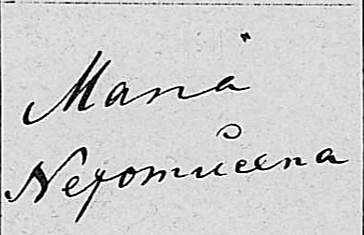 Maria
Nepomucena